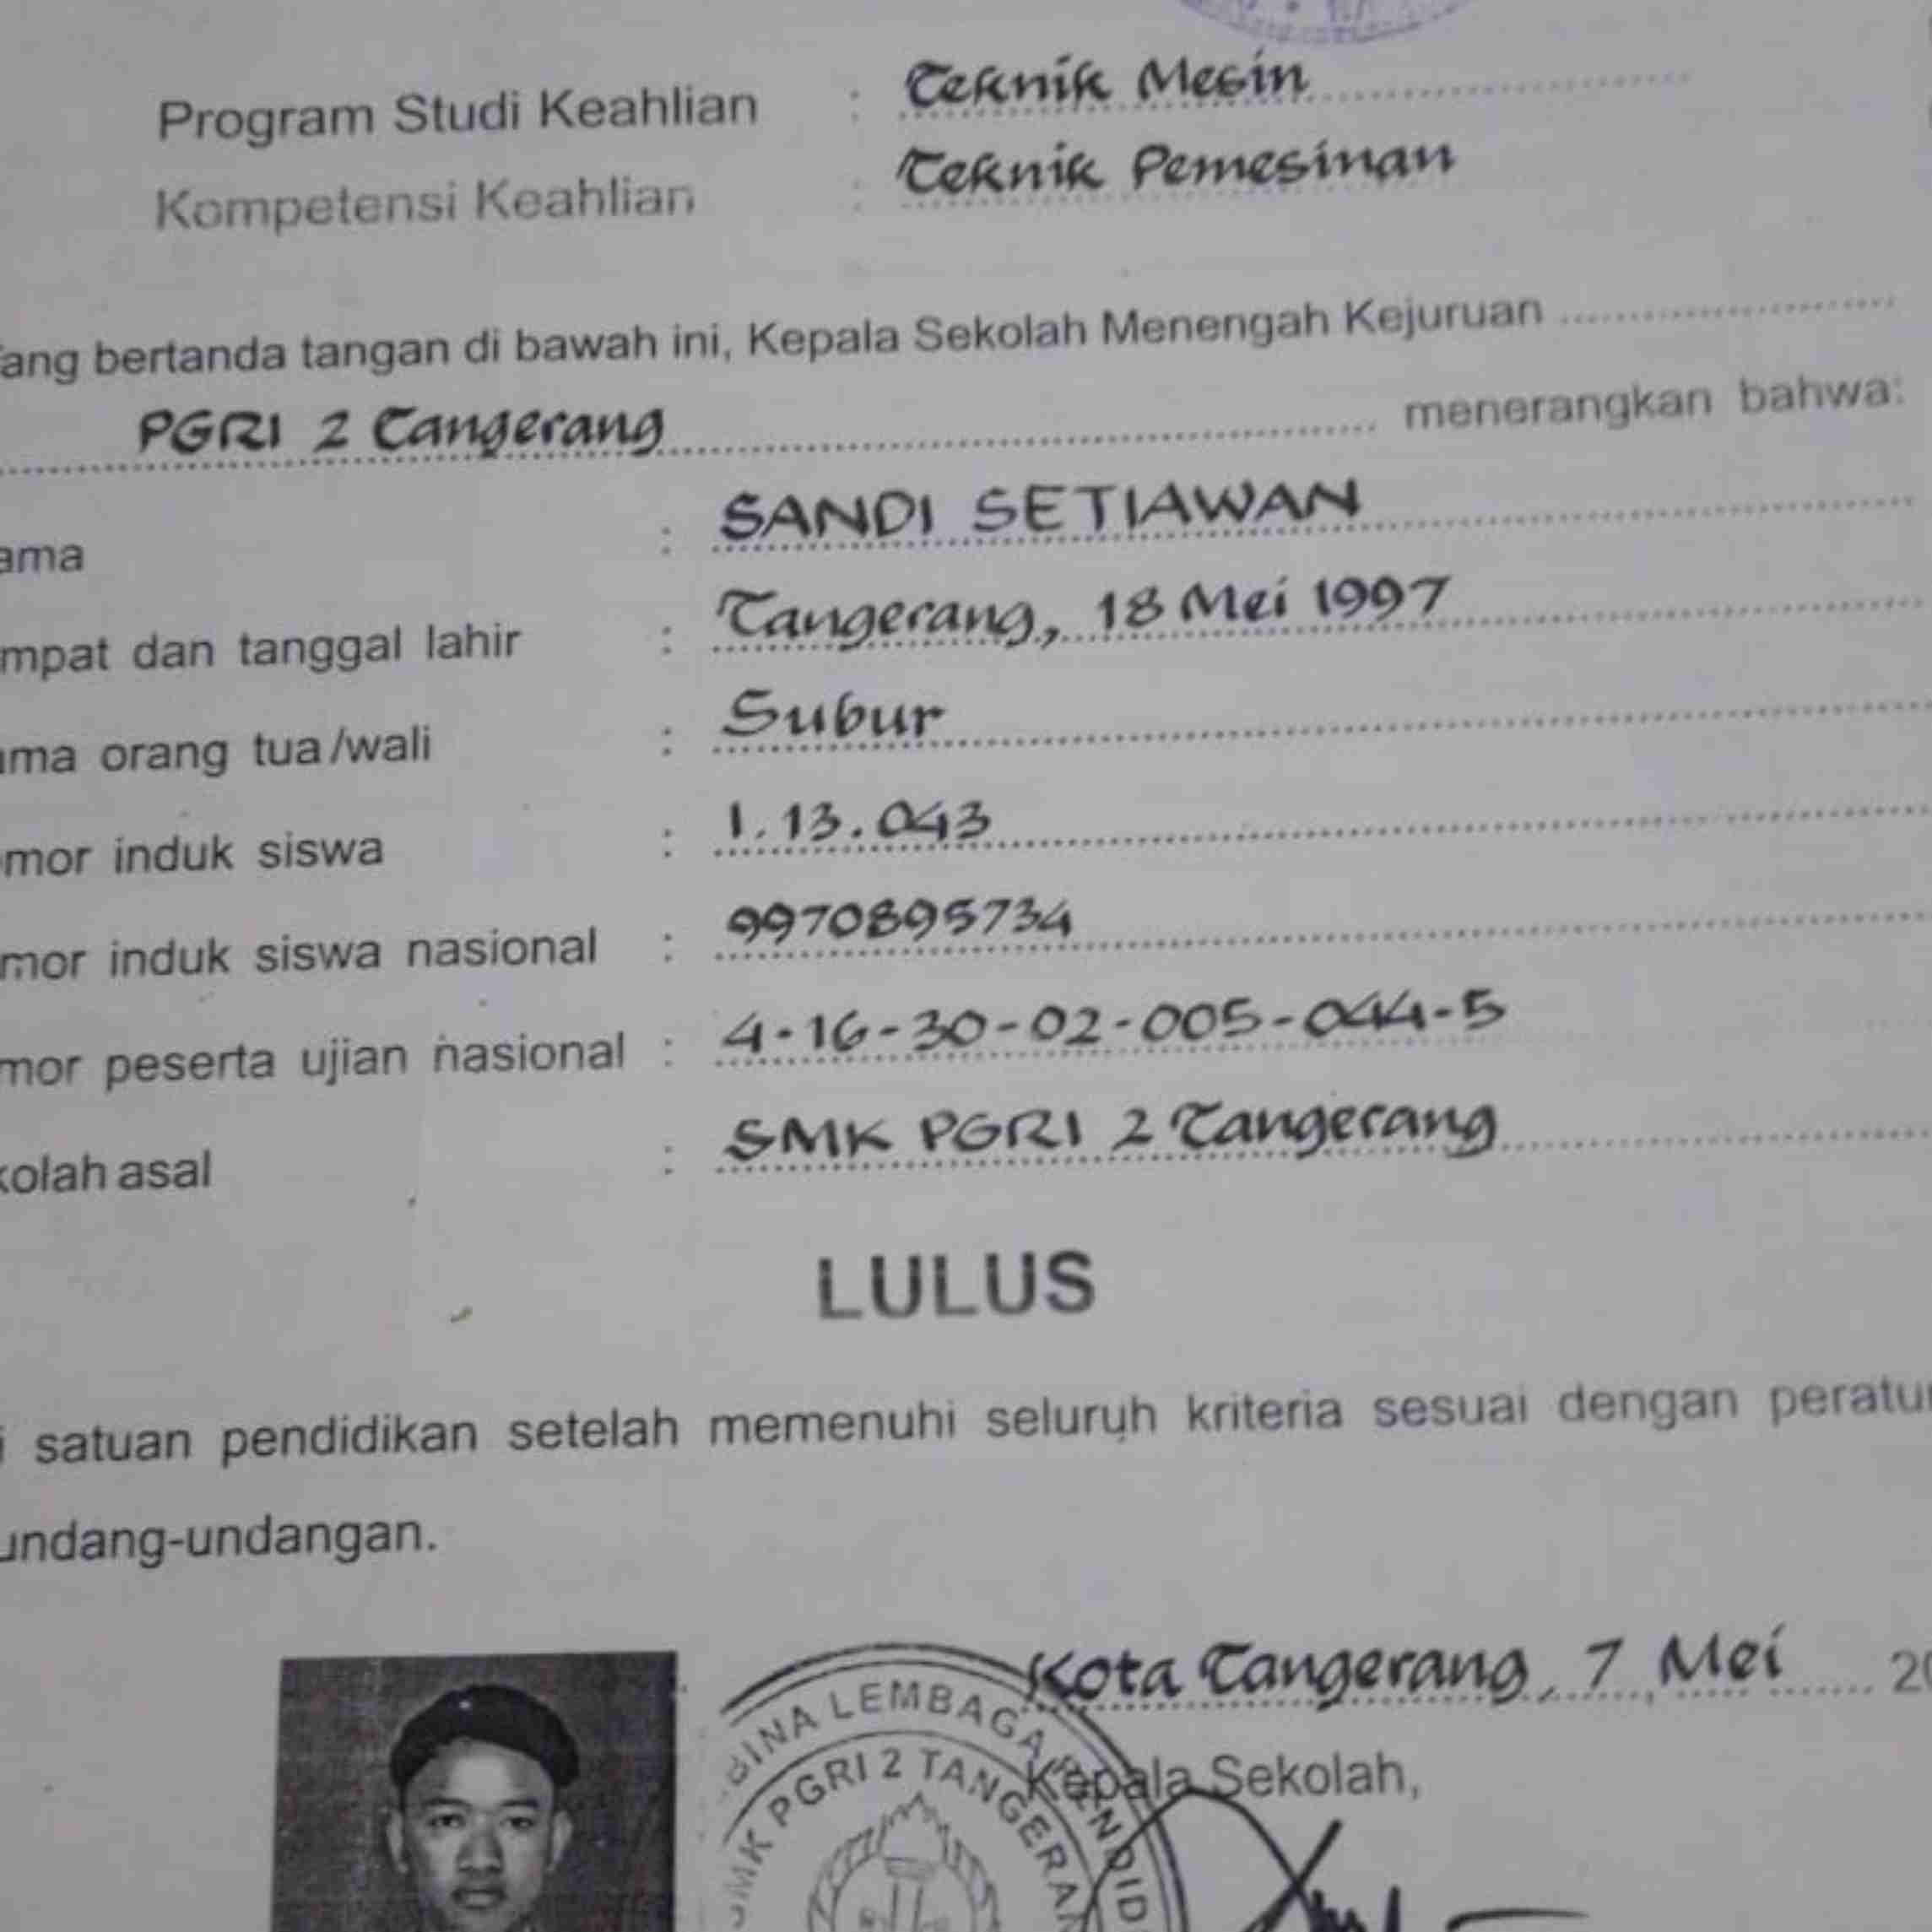 Program Studi Keahlian : Teknik Mesin
Kompetensi Keahlian : Teknik Pemesinan
ang bertanda tangan di bawah ini, Kepala Sekolah Menengah Kejuruan
PGRI 2 Tangerang menerangkan bahwa:
ama : SANDI SETIAWAN
mpat dan tanggal lahir : Tangerang, 18 Mei 1997
ma orang tua/wali : Subur
mor induk siswa : 1.13.043
mor induk siswa nasional : 9970895734
mor peserta ujian nasional : 4-16-30-02-005-044-5
kolah asal : SMK PGRI 2 Tangerang
LULUS
i satuan pendidikan setelah memenuhi seluruh kriteria sesuai dengan peratu
undang-undangan.
Kota Tangerang, 7 Mei 20
BINA LEMBAGA PENDID
SMK PGRI 2 TANGERAN
Kepala Sekolah,